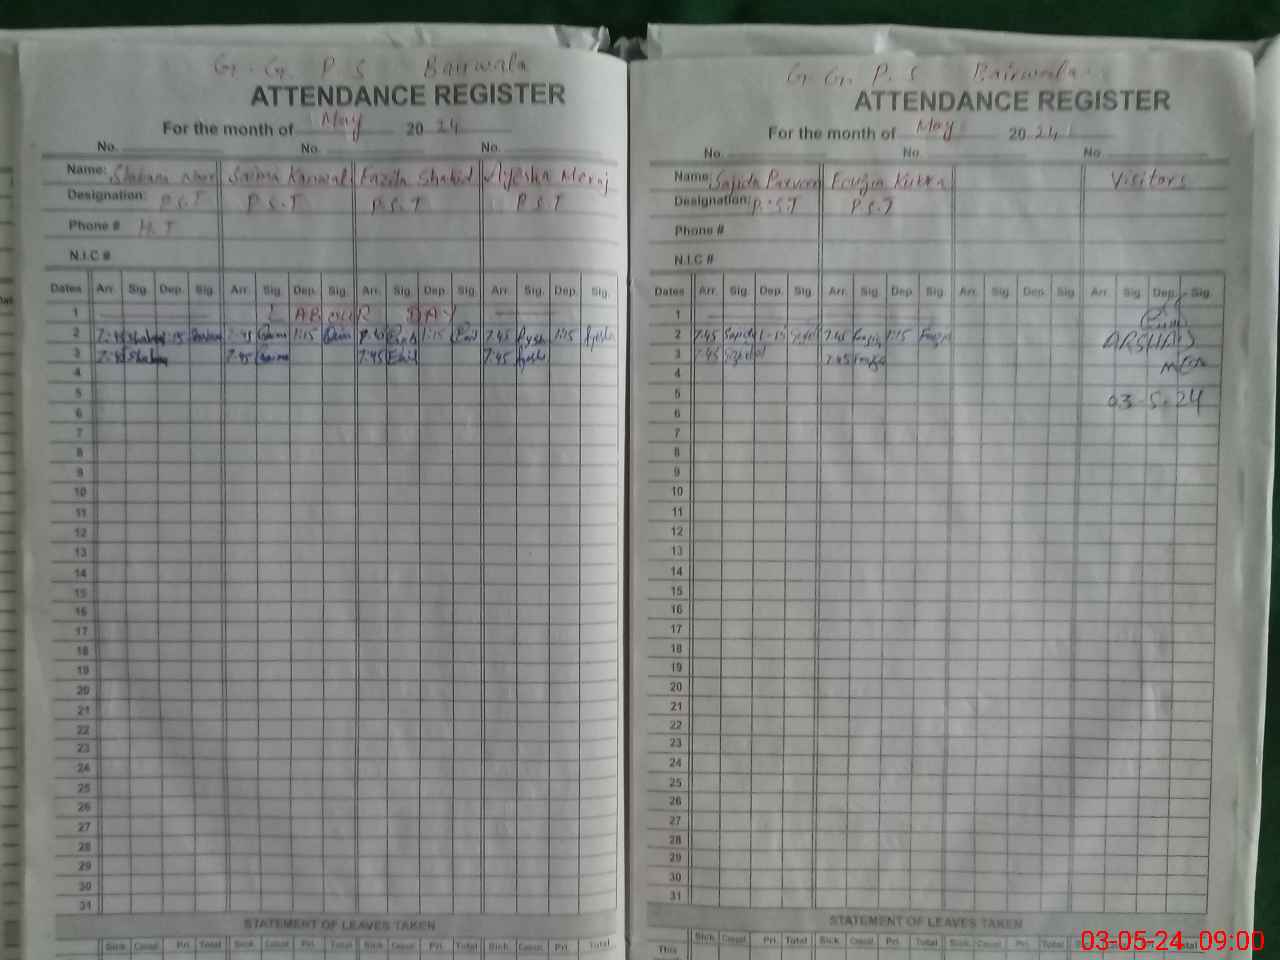 G. G. P. S Bairwala
ATTENDANCE REGISTER
For the month of May 20 24
No. No. No.
Name: Shabana Noor Saima Kanwal Fazila Shahid Ayesha Meraj
Designation: P.S.T P.S.T P.S.T P.S.T
Phone # H.T
N.I.C #
Dates Arr. Sig. Dep. Sig. Arr. Sig. Dep. Sig. Arr. Sig. Dep. Sig. Arr. Sig. Dep. Sig.
1 LABOUR DAY
2 7:45 1:15 7:45 1:15 1:15 7:45 1:15
3 7:45 7:45 7:45 7:45
4
5
6
7
8
9
10
11
12
13
14
15
16
17
18
19
20
21
22
23
24
25
26
27
28
29
30
31
STATEMENT OF LEAVES TAKEN
Sick Casul. Pri. Total Sick Casul. Pri. Total Sick Casul. Pri. Total Sick Casul. Pri. Total
G. G. P. S Bairwala
ATTENDANCE REGISTER
For the month of May 20 24
No. No. No.
Name: Sajida Parveen Visitors
Designation: P.S.T P.S.T
Phone #
N.I.C #
Dates Arr. Sig. Dep. Sig. Arr. Sig. Dep. Sig. Arr. Sig. Dep. Sig. Arr. Sig. Dep. Sig.
1
2 7:45 Sajida 1:15 7:45 1:15 ARSHAD
3 7:45 Sajida 7:45 MEA
4
5 03-5-24
6
7
8
9
10
11
12
13
14
15
16
17
18
19
20
21
22
23
24
25
26
27
28
29
30
31
STATEMENT OF LEAVES TAKEN
This Sick Casul. Pri. Total Sick Casul. Pri. Total Sick Casul. Pri. Total
03-05-24 09:00